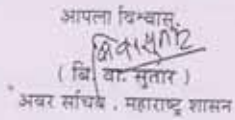 आपला विश्वासू,
( वि. वा. सुतार )
अवर सचिव , महाराष्ट्र शासन